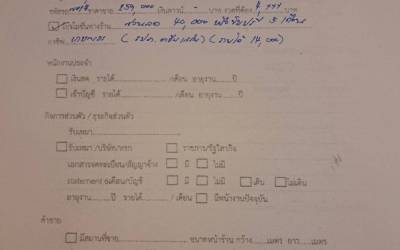 ราคาขาย 259,000 เงินดาวน์ - บาท งวดที่ต้อง บาท
โปรโมชั่นทางร้าน ส่วนลด 40,000 3 เดือน
อาชีพ (รายได้ 14,000)
พนักงานประจำ
เงินสด รายได้ /เดือน อายุงาน ปี
เข้าบัญชี รายได้ /เดือน อายุงาน ปี
กิจการส่วนตัว / ธุรกิจส่วนตัว
รับเหมา
รับเหมา /บริษัท/ ราชการ/รัฐวิสาหกิจ
เอกสารจดทะเบียน/สัญญาจ้าง มี ไม่มี
statement 6เดือน/บัญชี มี ไม่มี เดิน ไม่เดิน
อายุงาน ปี รายได้ / เดือน มีหน้างานปัจจุบัน
ค้าขาย
มีสถานที่ขาย ขนาดหน้าร้าน กว้าง เมตร ยาว เมตร